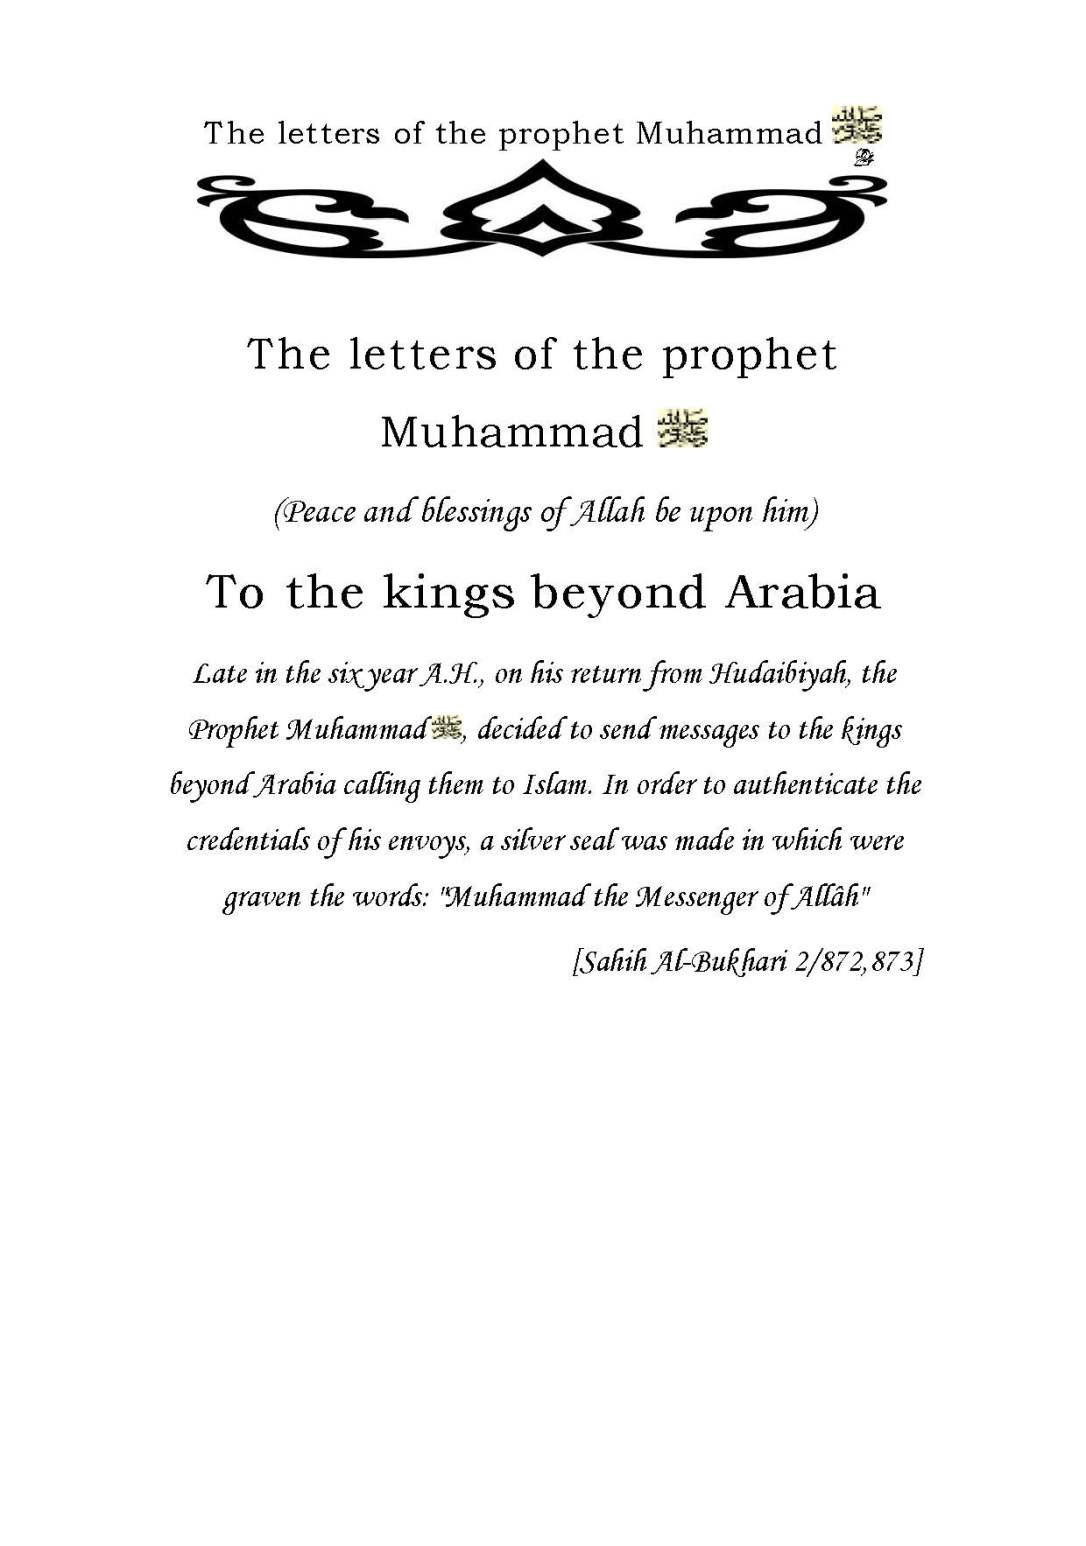 The letters of the prophet Muhammad ﷺ
The letters of the prophet
Muhammad ﷺ
(Peace and blessings of Allah be upon him)
To the kings beyond Arabia
Late in the six year A.H., on his return from Hudaibiyah, the
Prophet Muhammad ﷺ, decided to send messages to the kings
beyond Arabia calling them to Islam. In order to authenticate the
credentials of his envoys, a silver seal was made in which were
graven the words: "Muhammad the Messenger of Allâh"
[Sahih Al-Bukhari 2/872,873]